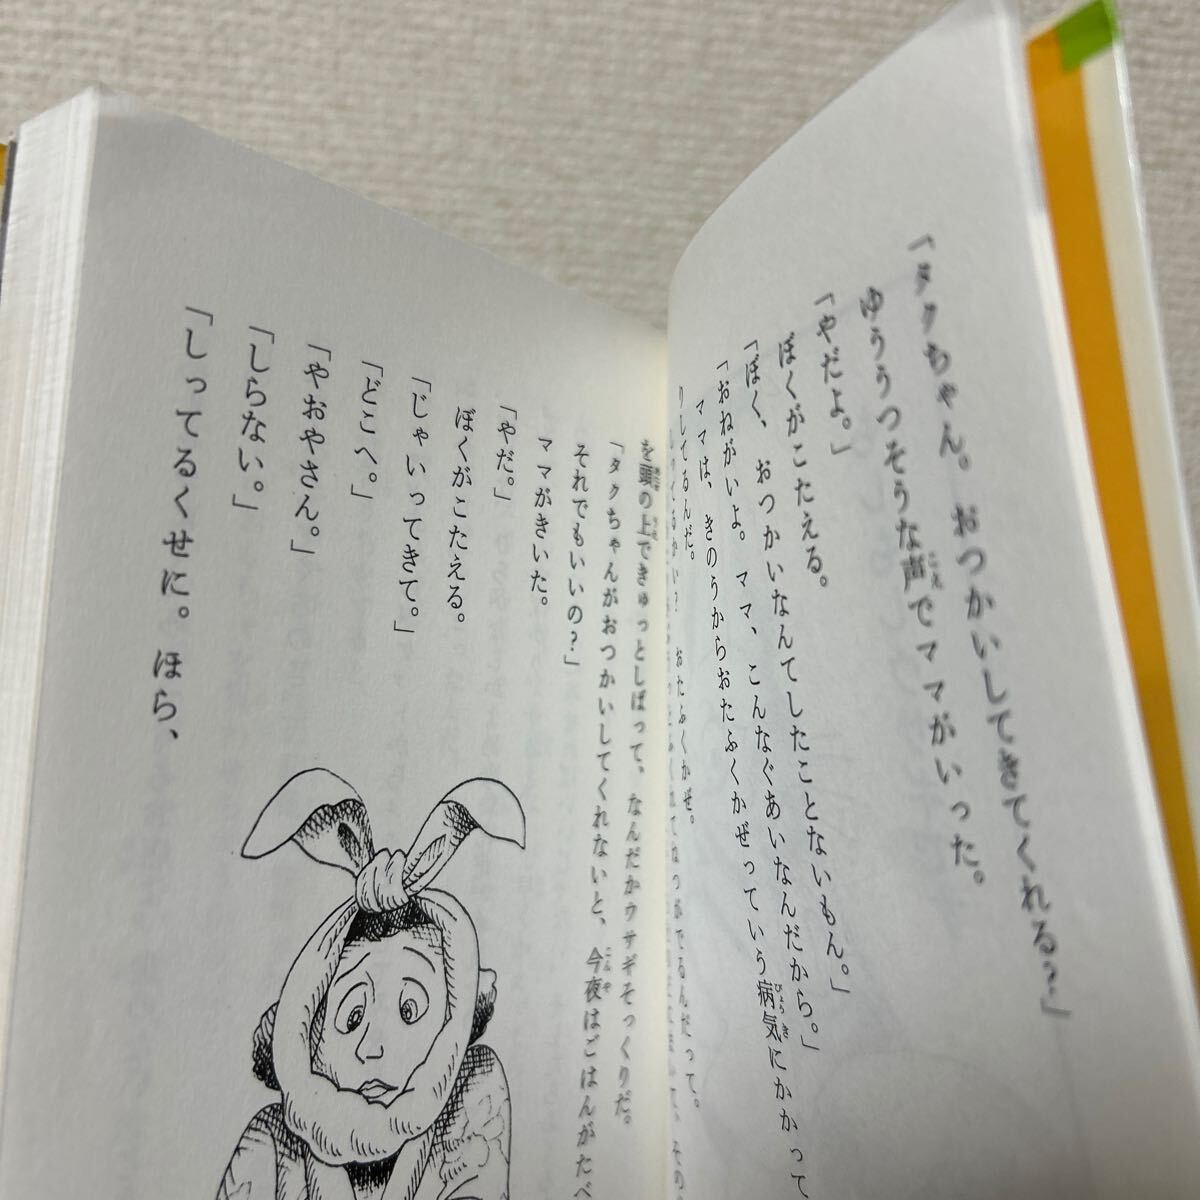 「タクちゃん。おつかいしてきてくれる？」
ゆううつそうな声でママがいった。
「やだよ。」
ぼくがこたえる。
「ぼく、おつかいなんてしたことないもん。」
「おねがいよ。ママ、こんなぐあいなんだから。」
ママは、きのうからおたふくかぜっていう病気にかかって
りしてるんだ。
しってるかい？　おたふくかぜ。
を頭の上できゅっとしばって、なんだかウサギそっくりだ。
「タクちゃんがおつかいしてくれないと、今夜はごはんがたべ
それでもいいの？」
ママがきいた。
「やだ。」
ぼくがこたえる。
「じゃいってきて。」
「どこへ。」
「やおやさん。」
「しらない。」
「しってるくせに。ほら、